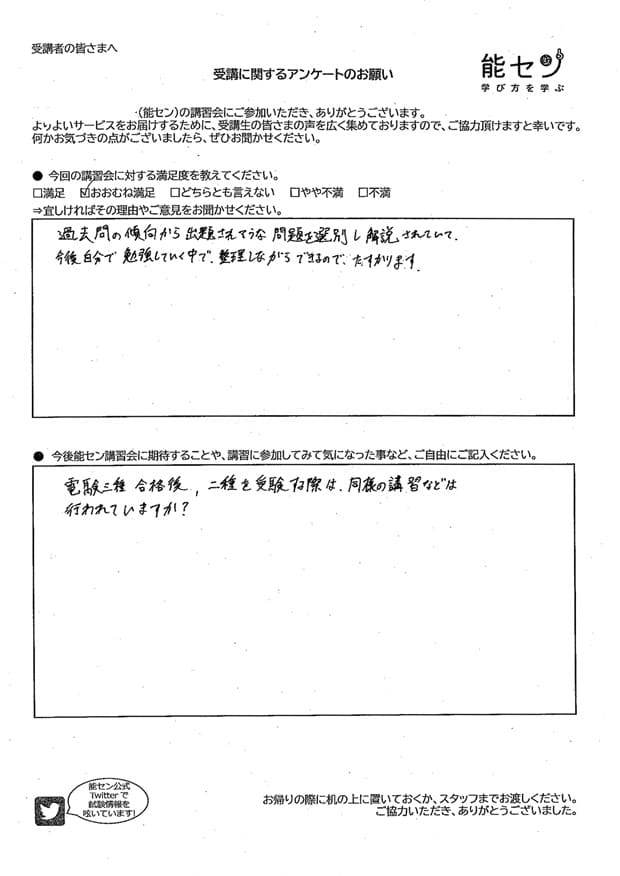 受講者の皆さまへ
受講に関するアンケートのお願い
能セン
学び方を学ぶ
(能セン)の講習会にご参加いただき、ありがとうございます。
よりよいサービスをお届けするために、受講生の皆さまの声を広く集めておりますので、ご協力頂けますと幸いです。
何かお気づきの点がございましたら、ぜひお聞かせください。
● 今回の講習会に対する満足度を教えてください。
□満足 ☑おおむね満足 □どちらとも言えない □やや不満 □不満
⇒宜しければその理由やご意見をお聞かせください。
過去問の傾向から出題されそうな問題を選別し解説されていて、
今後自分で勉強していく中で、整理しながらできるので、たすかります。
● 今後能セン講習会に期待することや、講習に参加してみて気になった事など、ご自由にご記入ください。
電験三種合格後、二種を受験する際は、同様の講習などは
行われていますか?
能セン公式
Twitterで
試験情報を
呟いています!
お帰りの際に机の上に置いておくか、スタッフまでお渡しください。
ご協力いただき、ありがとうございました。